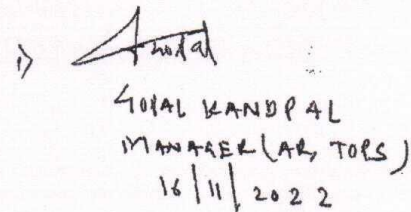 1)
GOPAL KANDPAL
MANAGER (AR, TOPS)
16/11/2022